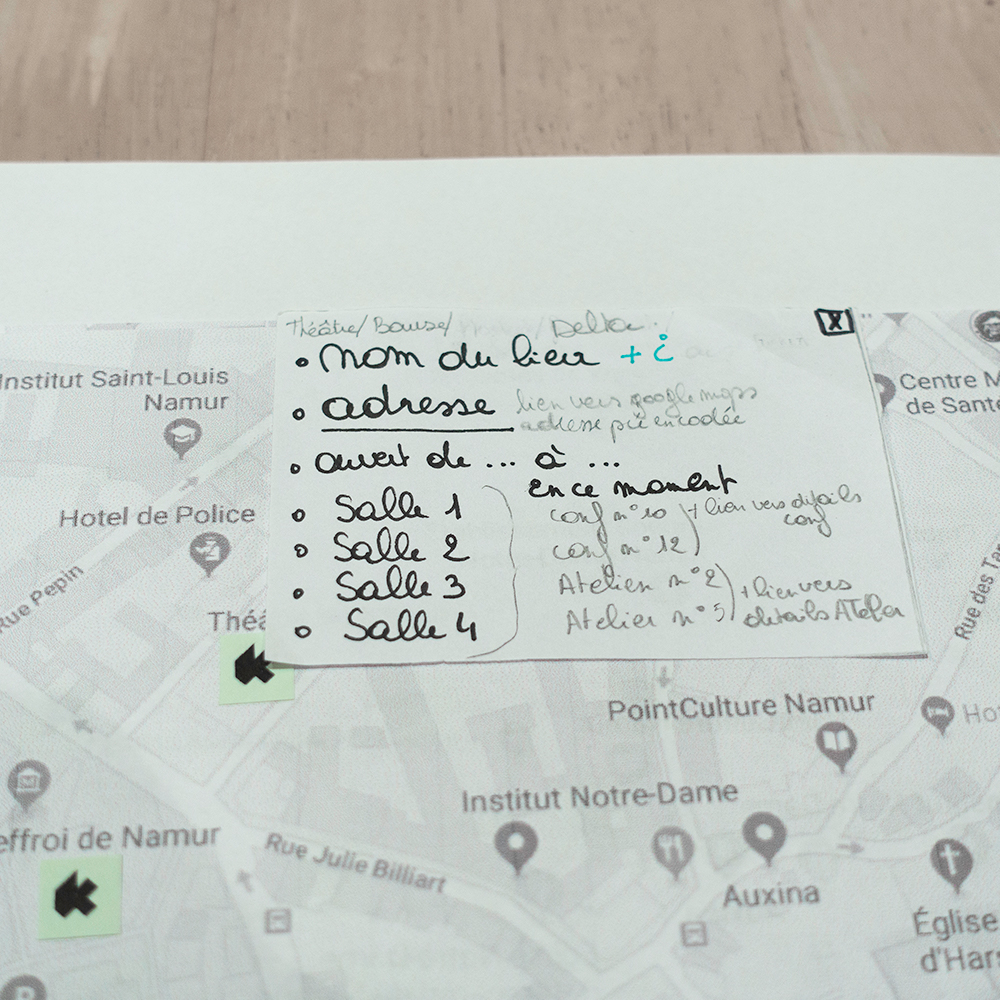 Théâtre/ Bourse/ /Delta
X
• nom du lieu + i
• adresse lien vers google maps
adresse pré encodée
• ouvert de ... à ...
En ce moment
• Salle 1 conf n°10 + lien vers détails
conf
• Salle 2 conf n°12
• Salle 3 Atelier n°2 + lien vers
• Salle 4 Atelier n°5 détails Atelier
Institut Saint-Louis
Namur
Centre M
de Santé
Hotel de Police
Rue Pepin
Théâ
Rue des Ta
PointCulture Namur
Ho
Institut Notre-Dame
effroi de Namur
Rue Julie Billiart
Auxina
Église
d'Hars
P